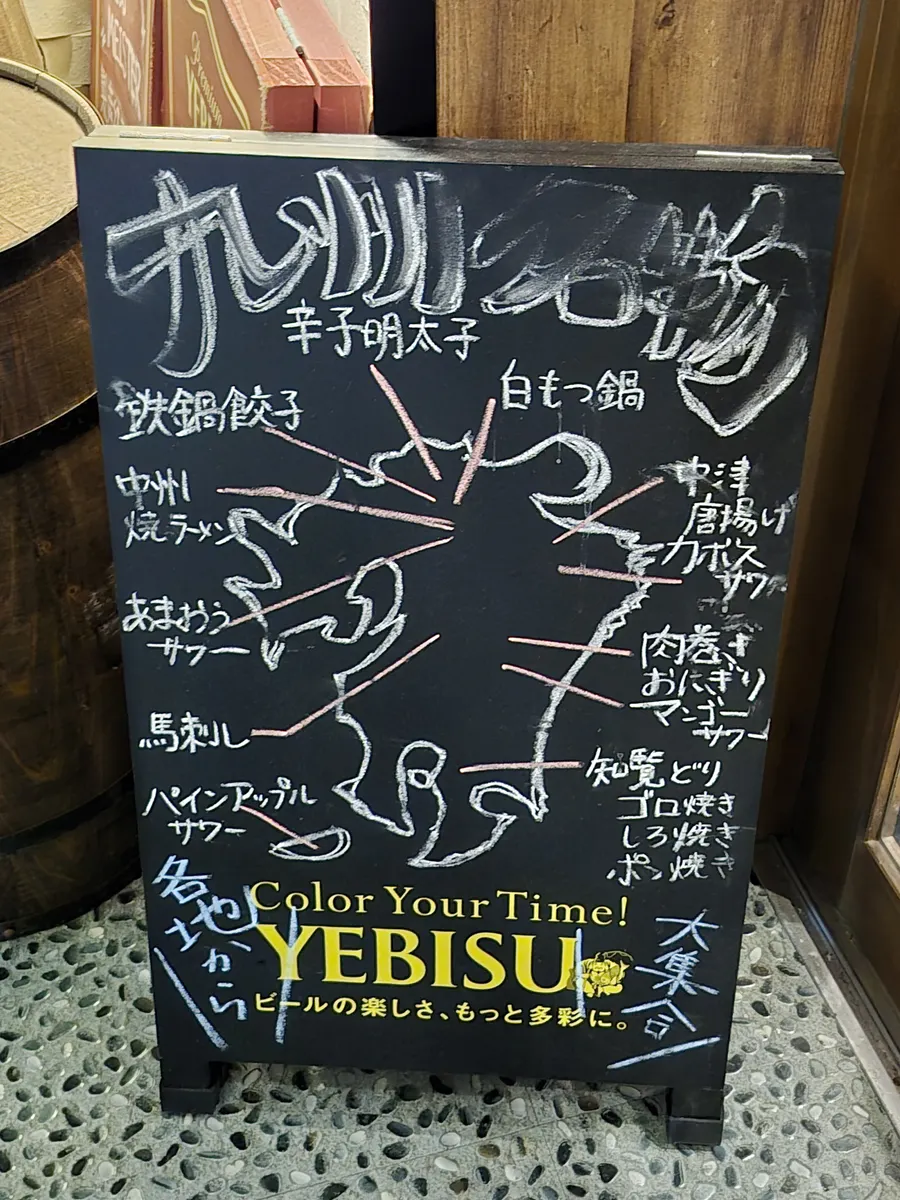 九州名物
辛子明太子
鉄鍋餃子
白もつ鍋
中州
焼ラーメン
中津
唐揚げ
カボス
サワー
あまおう
サワー
肉巻き
おにぎり
マンゴー
サワー
馬刺し
知覧どり
ゴロ焼き
しろ焼き
ポン焼き
パインアップル
サワー
各地から
大集合
Color Your Time!
YEBISU
ビールの楽しさ、もっと多彩に。